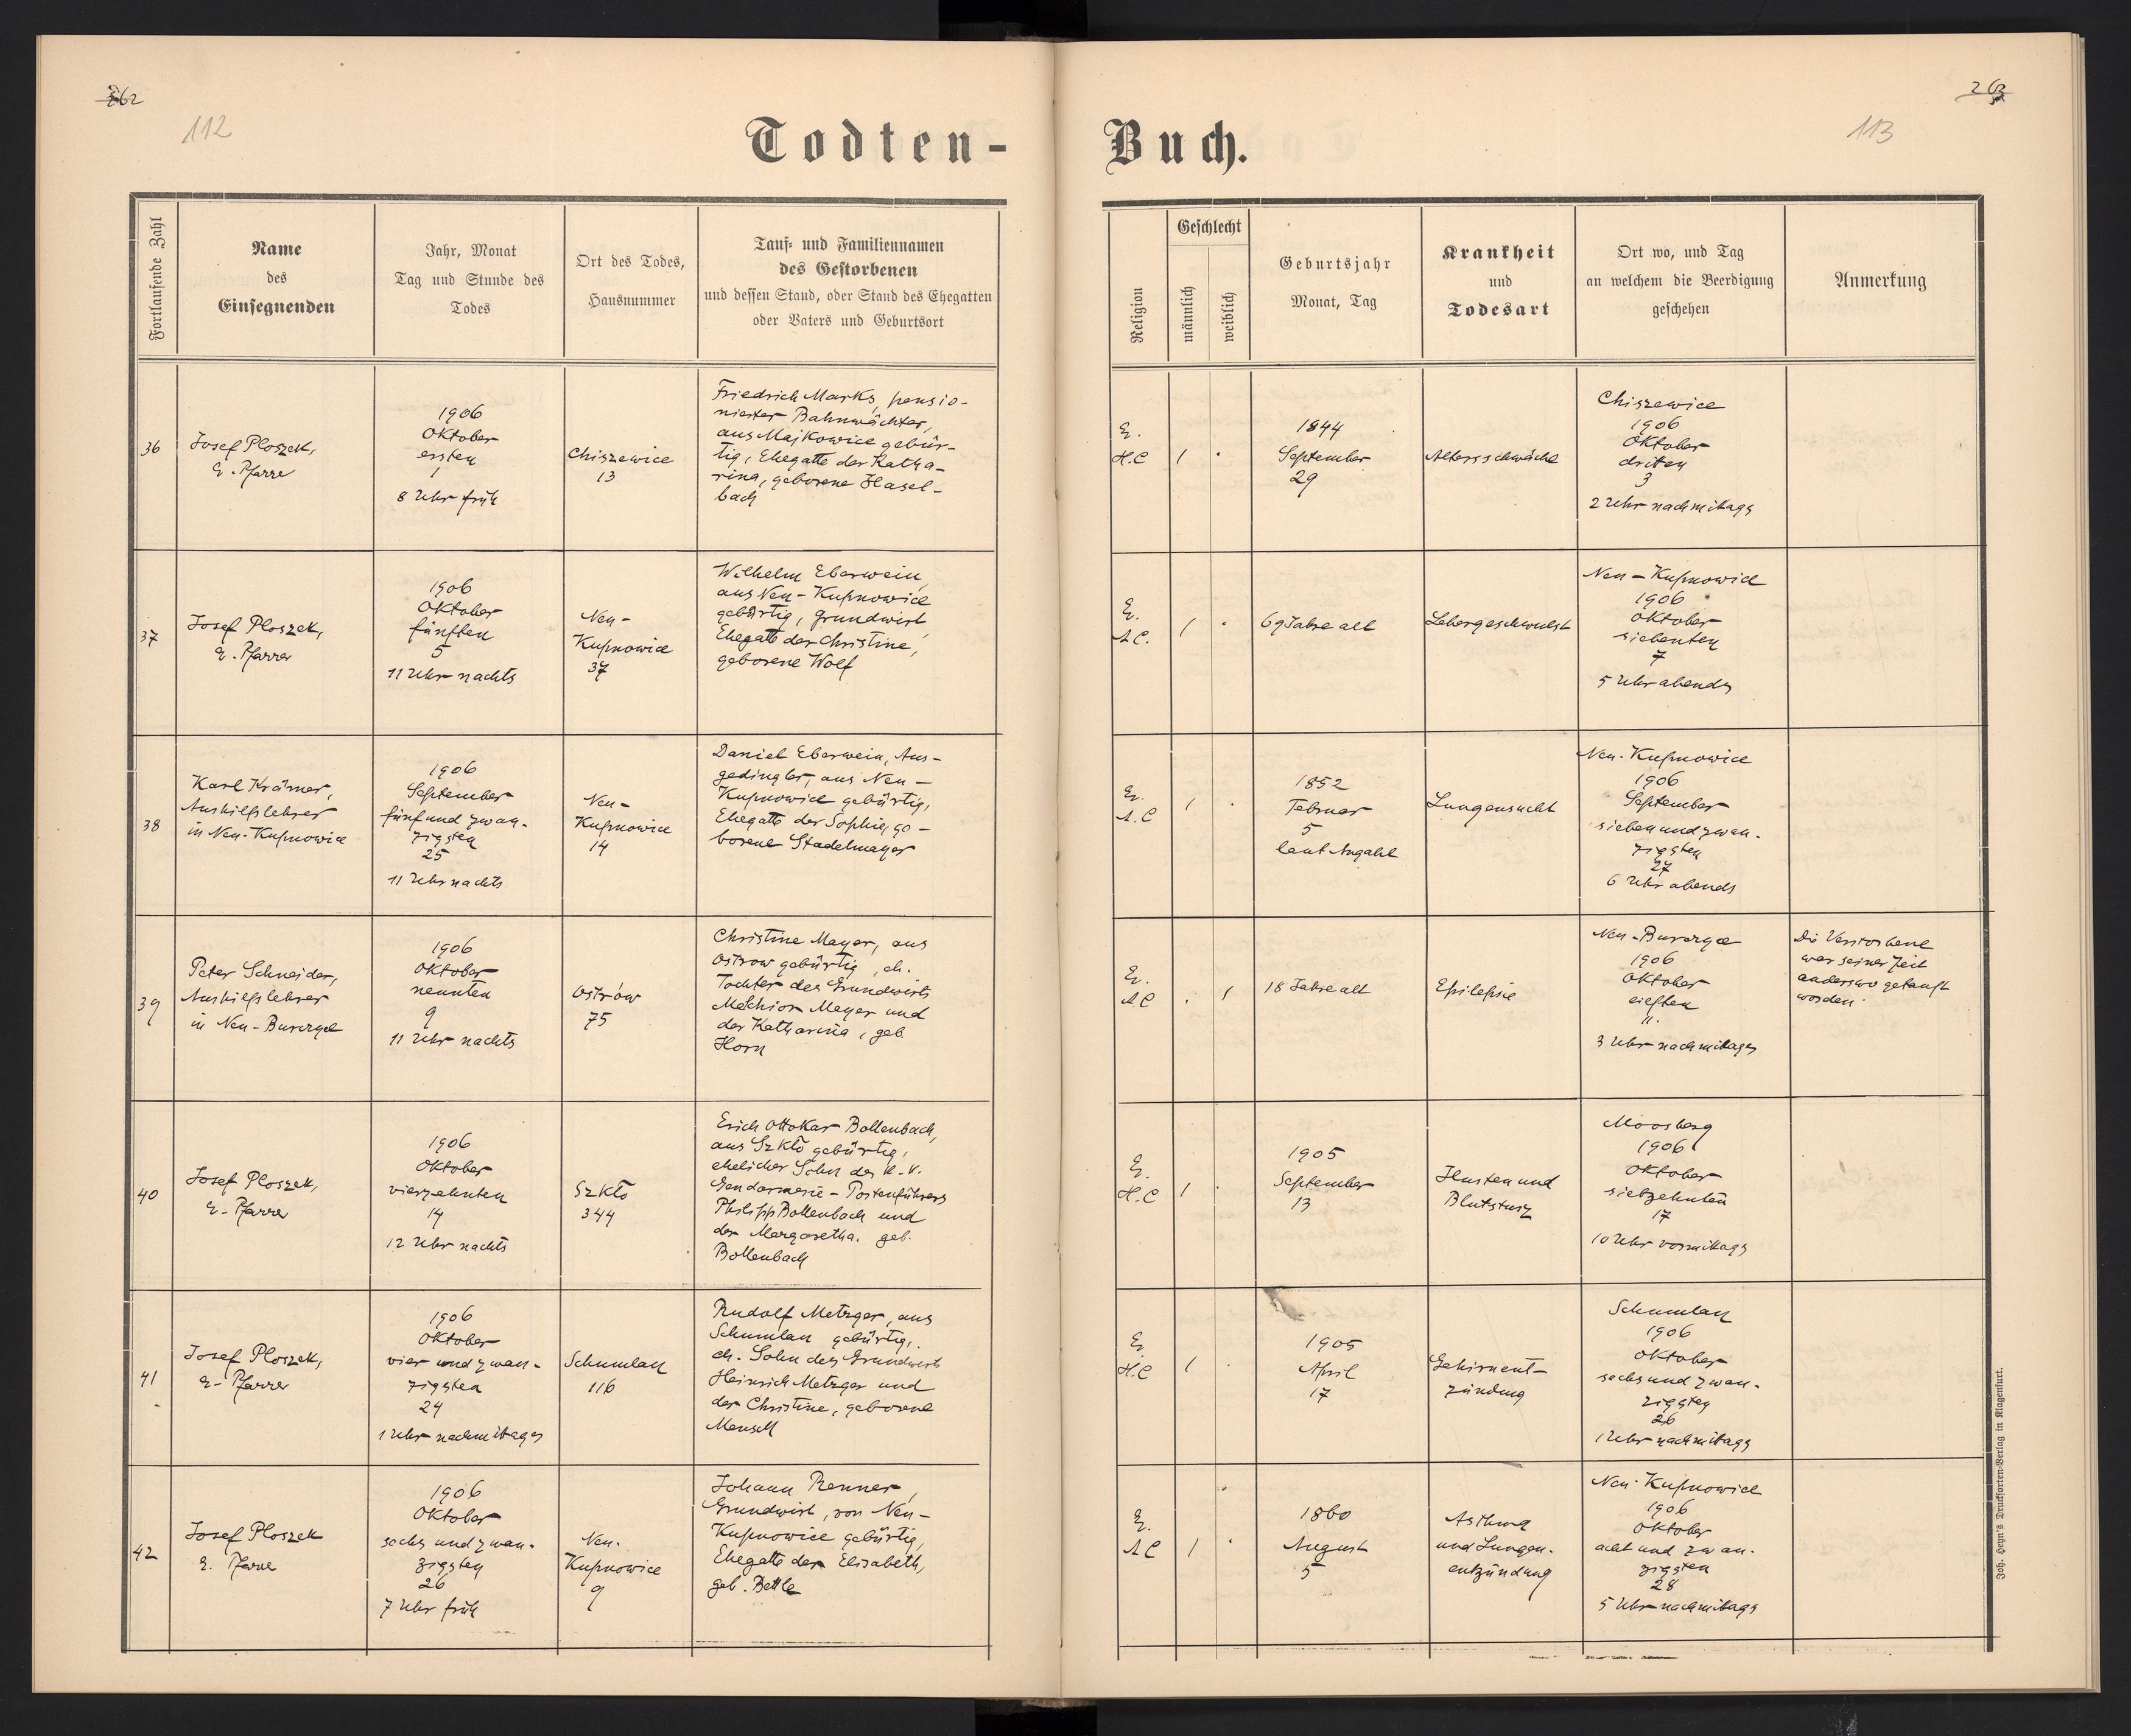 262
112
Todten-
Fortlaufende Zahl
Name
des
Einsegnenden
Jahr, Monat
Tag und Stunde des
Todes
Ort des Todes,
Hausnummer
Tauf- und Familiennamen
des Gestorbenen
und dessen Stand, oder Stand des Ehegatten
oder Vaters und Geburtsort
36
Josef Ploszek,
E. Pfarre
1906
Oktober
ersten
1
8 Uhr früh
Chiszewice
13
Friedrich Marks, pensio-
nierter Bahnwächter,
aus Majkowice gebür-
tig, Ehegatte der Katha-
rina, geborene Hasel-
bach
37
Josef Ploszek,
E. Pfarrer
1906
Oktober
fünften
5
11 Uhr nachts
Neu-
Kupnowice
37
Wilhelm Eberwein,
aus Neu-Kupnowice
gebürtig, Grundwirt,
Ehegatte der Christine,
geborene Wolf
38
Karl Krämer,
Aushilfslehrer
in Neu-Kupnowice
1906
September
fünfundzwan-
zigsten
25
11 Uhr nachts
Neu-
Kupnowice
14
Daniel Eberwein, Aus-
gedingler, aus Neu-
Kupnowice gebürtig,
Ehegatte der Sophie, ge-
borene Stadelmayer
39
Peter Schneider,
Aushilfslehrer
in Neu-Burczyce
1906
Oktober
neunten
9
11 Uhr nachts
Ostrów
75
Christine Mayer, aus
Ostrow gebürtig, eh.
Tochter des Grundwirts
Melchior Mayer und
der Katharina, geb.
Horn
40
Josef Ploszek,
E. Pfarrer
1906
Oktober
vierzehnten
14
12 Uhr nachts
Szkło
344
Erich Ottokar Bollenbach,
aus Szkło gebürtig,
ehelicher Sohn des k. k.
Gendarmerie-Postenführers
Philipp Bollenbach und
der Margaretha. geb.
Bollenbach
41
Josef Ploszek,
E. Pfarrer
1906
Oktober
vier und zwan-
zigsten
24
1 Uhr nachmittags
Schumlau
116
Rudolf Metzger, aus
Schumlau gebürtig,
eh. Sohn des Grundwirts
Heinrich Metzger und
der Christine, geborene
Mensch
42
Josef Ploszek
E. Pfarre
1906
Oktober
sechs und zwan-
zigsten
26
7 Uhr früh
Neu-
Kupnowice
9
Johann Renner,
Grundwirt, von Neu-
Kupnowice gebürtig,
Ehegatte der Elisabeth,
geb. Bettle
263
113
Buch.
Religion
Geschlecht
männlich
weiblich
Geburtsjahr
Monat, Tag
Krankheit
und
Todesart
Ort wo, und Tag
an welchem die Beerdigung
geschehen
Anmerkung
E.
H.C
1
1844
September
29
Altersschwäche
Chiszewice
1906
Oktober
driten
3
2 Uhr nachmitags
E.
A.C.
1
69 Jahre alt
Lebergeschwulst
Neu-Kupnowice
1906
Oktober
siebenten
7
5 Uhr abends
E.
A.C
1
1852
Februar
5
laut Angabe
Lungensucht
Neu-Kupnowice
1906
September
siebenundzwan-
zigsten
27
6 Uhr abends
E.
AC
1
18 Jahre alt
Epilepsie
Neu-Burczyce
1906
Oktober
eilften
11.
3 Uhr nachmittags
Die Verstorbene
war seiner Zeit
anderswo getauft
worden.
E.
H.C
1
1905
September
13
Husten und
Blutsturz
Moosberg
1906
Oktober
siebzehnten
17
10 Uhr vormittags
E.
H.C
1
1905
April
17
Gehirnent-
zündung
Schumlau
1906
Oktober
sechsundzwan-
zigsten
26
1 Uhr nachmittags
E.
AC
1
1860
August
5
Asthma
und Lungen-
entzündung
Neu-Kupnowice
1906
Oktober
acht und zwan-
zigsten
28
5 Uhr nachmittags
Joh. Heyn's Drucksorten-Verlag in Klagenfurt.